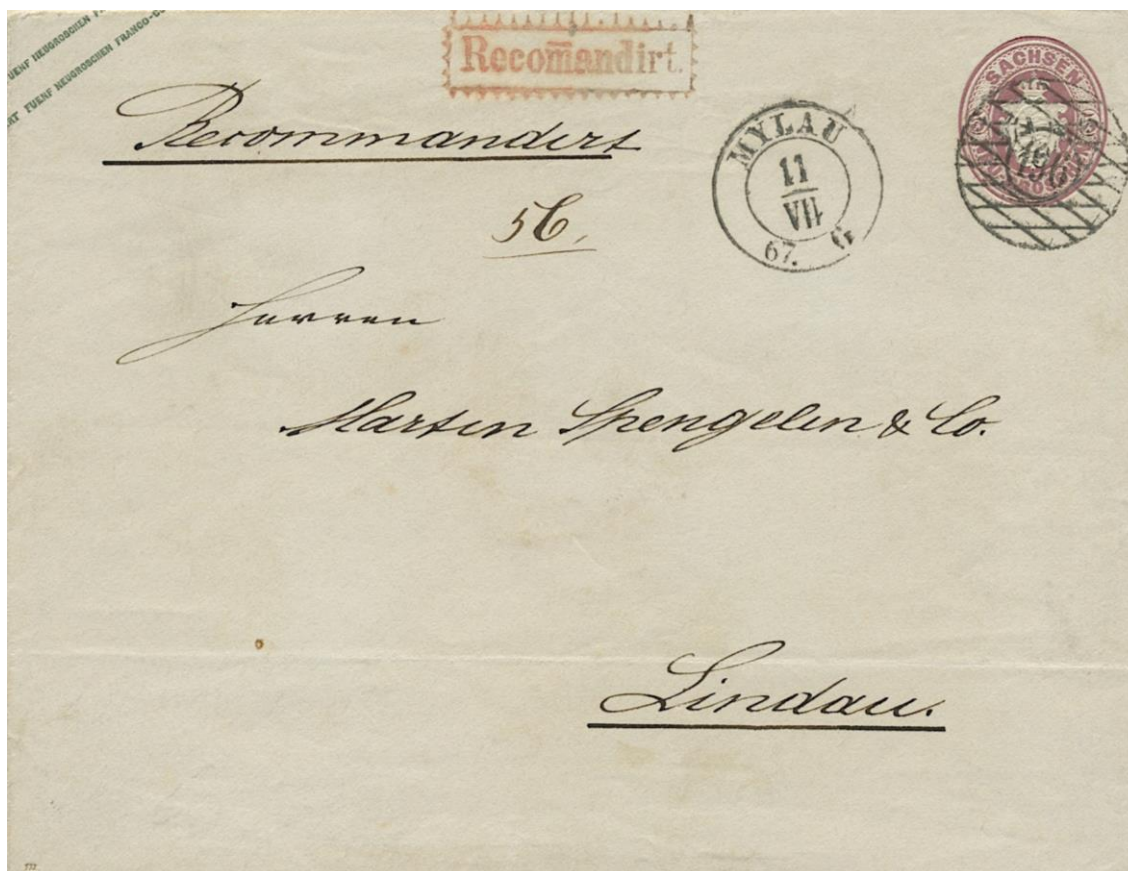 FUENF NEUGROSCHEN
FUENF NEUGROSCHEN FRANCO-CO
Recomandirt.
Recommandirt
56.
MYLAU
11
VII
67. G
SACHSEN
Herren
Martin Spengelin & Co.
Lindau.